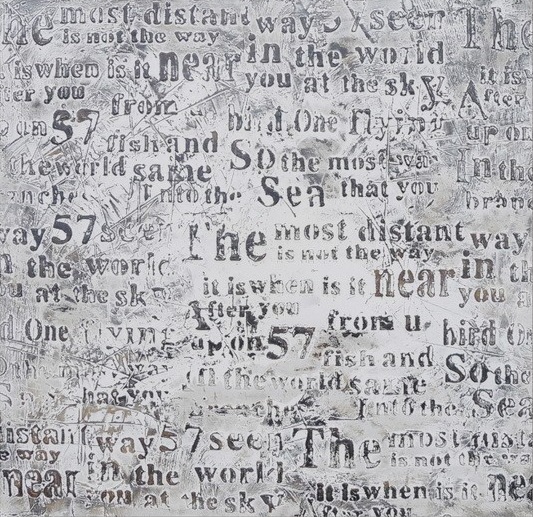 The most distant way seen The
is not the way in the world
is when is it near you at the sky it is
after you from After
an 57 bird One flying up on
fish and So the most way In the
the world same
Into the Sea that you bran
way 57 seen The most distant way
is not the way
the world it is when is it near in th
at the sk After you you a
d One flying up on 57 from u bird On
fish and So the
way In the world same
has you Into the Sea
distant way 57 seen The most dista
e way in the world is not the wa
near you at the sky it is when is it ne
After you